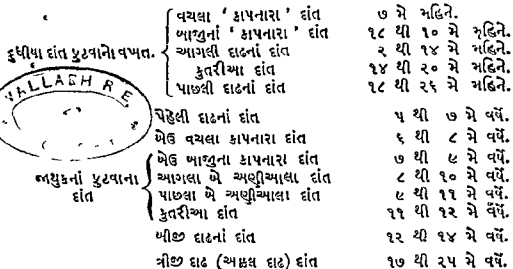 વચલા ' કાપનારા ' દાંત ૭ મે મહિને.
બાજુનાં ' કાપનારા ' દાંત ૧૮ થી ૧૦ મે મહિને.
દુધીયા દાંત ફુટવાનો વખત. આગલી દાઢનાં દાંત ૨ થી ૧૪ મે મહિને.
કુતરીઆ દાંત ૧૪ થી ૨૦ મે મહિને.
પાછલી દાઢનાં દાંત ૧૮ થી ૨૬ મે મહિને.
VALLABH R E
પેહેલી દાઢનાં દાંત ૫ થી ૭ મે વર્ષે.
બેઉ વચલા કાપનારા દાંત ૬ થી ૮ મે વર્ષે.
બેઉ બાજુના કાપનારા દાંત ૭ થી ૯ મે વર્ષે.
જાથુકનાં ફુટવાના દાંત આગલા બે અણીઆલા દાંત ૮ થી ૧૦ મે વર્ષે.
પાછલા બે અણીઆલા દાંત ૯ થી ૧૧ મે વર્ષે.
કુતરીઆ દાંત ૧૧ થી ૧૨ મે વર્ષે.
બીજી દાઢનાં દાંત ૧૨ થી ૧૪ મે વર્ષે.
ત્રીજી દાઢ (અક્કલ દાઢ) દાંત ૧૭ થી ૨૫ મે વર્ષે.